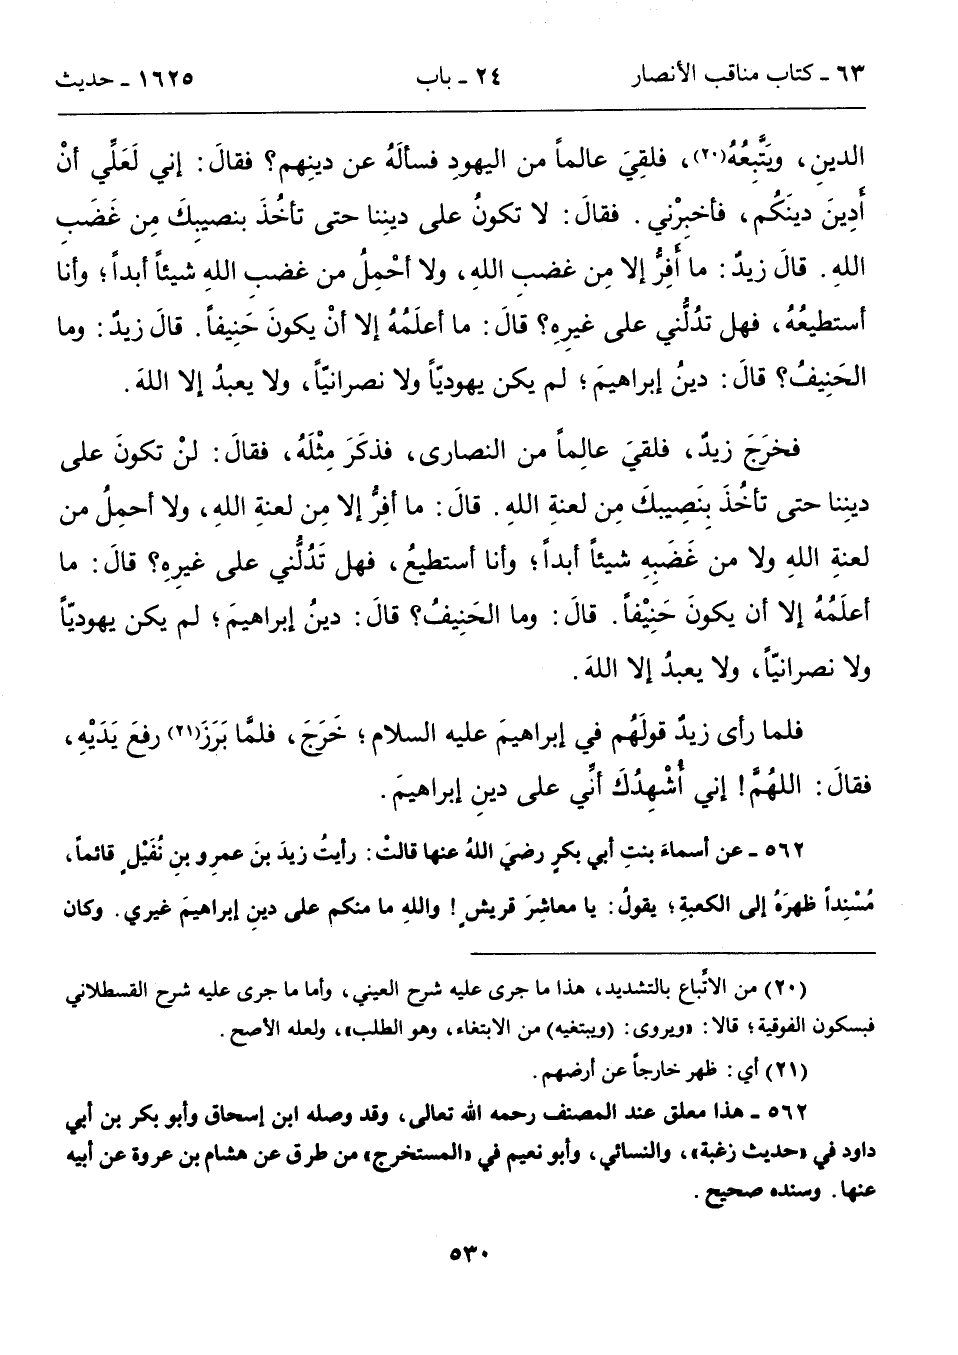 ٦٣ ـ كتاب مناقب الأنصار ٢٤ ـ باب ١٦٢٥ ـ حديث
الدينِ، ويَتَّبِعُهُ(٢٠)، فلقِيَ عالماً من اليهودِ فسألَهُ عن دينِهم؟ فقالَ: إني لَعَلِّي أنْ
أَدِينَ دينَكُم، فأخبِرْني. فقالَ: لا تكونُ على ديننا حتى تأخُذَ بنصيبِكَ مِن غَضَبِ
اللهِ. قالَ زيدٌ: ما أَفِرُّ إلا مِن غضبِ اللهِ، ولا أحْمِلُ من غضبِ اللهِ شيئاً أبداً؛ وأنا
أستطيعُهُ، فهل تدُلُّني على غيرِهِ؟ قالَ: ما أعلَمُهُ إلا أنْ يكونَ حَنِيفاً. قالَ زيدٌ: وما
الحَنِيفُ؟ قالَ: دينُ إبراهيمَ؛ لم يكن يهوديّاً ولا نصرانيّاً، ولا يعبدُ إلا اللهَ.
فخرَجَ زيدٌ، فلقيَ عالِماً من النصارى، فذكَرَ مِثْلَهُ، فقالَ: لنْ تكونَ على
ديننِا حتى تأخُذَ بِنَصِيبِكَ مِن لعنةِ اللهِ. قالَ: ما أفِرُّ إلا مِن لعنةِ اللهِ، ولا أحمِلُ من
لعنةِ اللهِ ولا من غَضَبِهِ شيئاً أبداً؛ وأنا أستطيعُ، فهل تَدُلُّني على غيرِهِ؟ قالَ: ما
أعلَمُهُ إلا أن يكونَ حَنِيْفاً. قالَ: وما الحَنِيفُ؟ قالَ: دينُ إبراهيمَ؛ لم يكن يهوديّاً
ولا نصرانيّاً، ولا يعبدُ إلا اللهَ.
فلما رأى زيدٌ قولَهُم في إبراهيمَ عليه السلام؛ خَرَجَ، فلمَّا بَرَزَ(٢١) رفعَ يَدَيْهِ،
فقالَ: اللهُمَّ! إني أُشْهِدُكَ أنِّي على دينِ إبراهيمَ.
٥٦٢ ـ عن أسماءَ بنتِ أبي بكرٍ رضيَ اللهُ عنها قالتْ: رأيتُ زيدَ بنَ عمرِو بنِ نُفَيْلٍ قائماً،
مُسْنِداً ظهرَهُ إلى الكعبةِ؛ يقولُ: يا معاشِرَ قريشٍ! واللهِ ما منكم على دينِ إبراهيمَ غيري. وكان
(٢٠) من الاتِّباع بالتشديد، هذا ما جرى عليه شرح العيني، وأما ما جرى عليه شرح القسطلاني
فبسكون الفوقية؛ قالا: «ويروى: (ويبتغيه) من الابتغاء، وهو الطلب»، ولعله الأصح.
(٢١) أي: ظهر خارجاً عن أرضهم.
٥٦٢ ـ هذا معلق عند المصنف رحمه الله تعالى، وقد وصله ابن إسحاق وأبو بكر بن أبي
داود في «حديث زغبة»، والنسائي، وأبو نعيم في «المستخرج» من طرق عن هشام بن عروة عن أبيه
عنها. وسنده صحيح.
٥٣٠